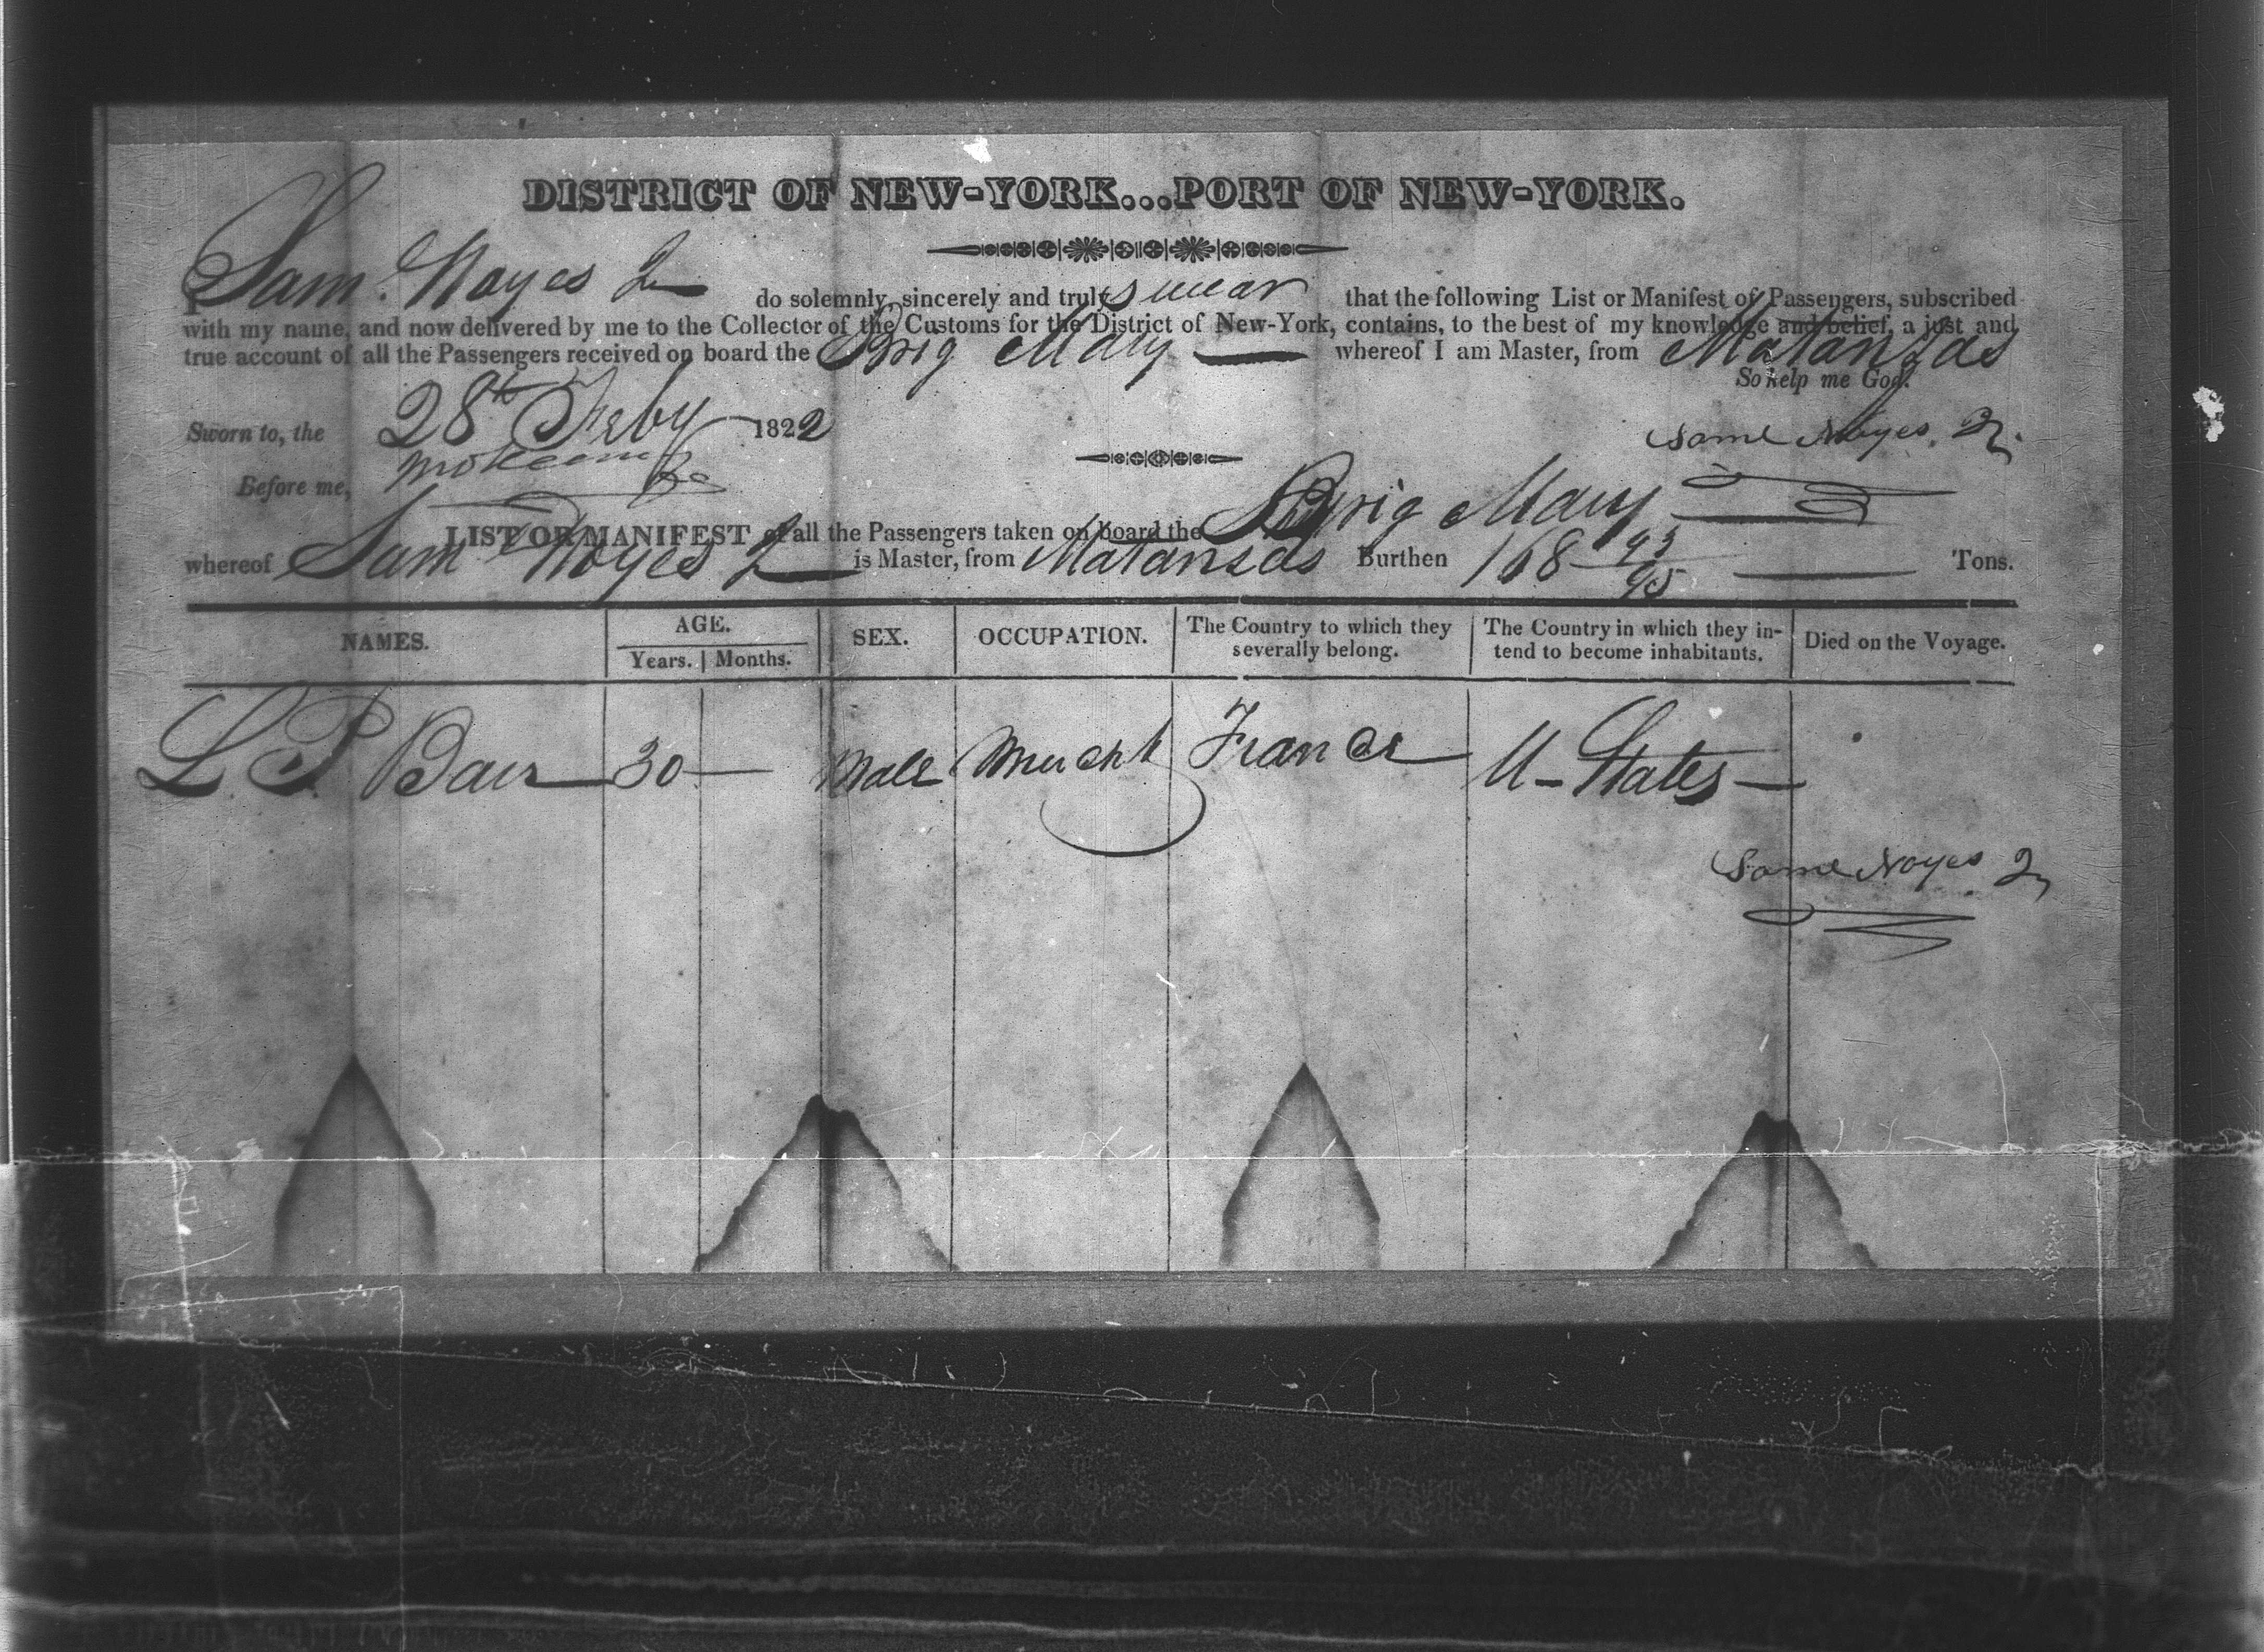 DISTRICT OF NEW-YORK...PORT OF NEW-YORK.
I Sam. Noyes 2 do solemnly, sincerely and truly swear that the following List or Manifest of Passengers, subscribed
with my name, and now delivered by me to the Collector of the Customs for the District of New-York, contains, to the best of my knowledge and belief, a just and
true account of all the Passengers received on board the Brig Mary whereof I am Master, from Matanzas
So help me God.
Sworn to, the 28th Feby 1822
Saml Noyes 2
Before me,
LIST OR MANIFEST of all the Passengers taken on board the Brig Mary
whereof Sam Noyes 2 is Master, from Matanzas Burthen 168 93/95 Tons.
NAMES. AGE. Years. Months. SEX. OCCUPATION. The Country to which they severally belong. The Country in which they in-tend to become inhabitants. Died on the Voyage.
L. P. 30 Male Mercht France U-States
Saml Noyes 2